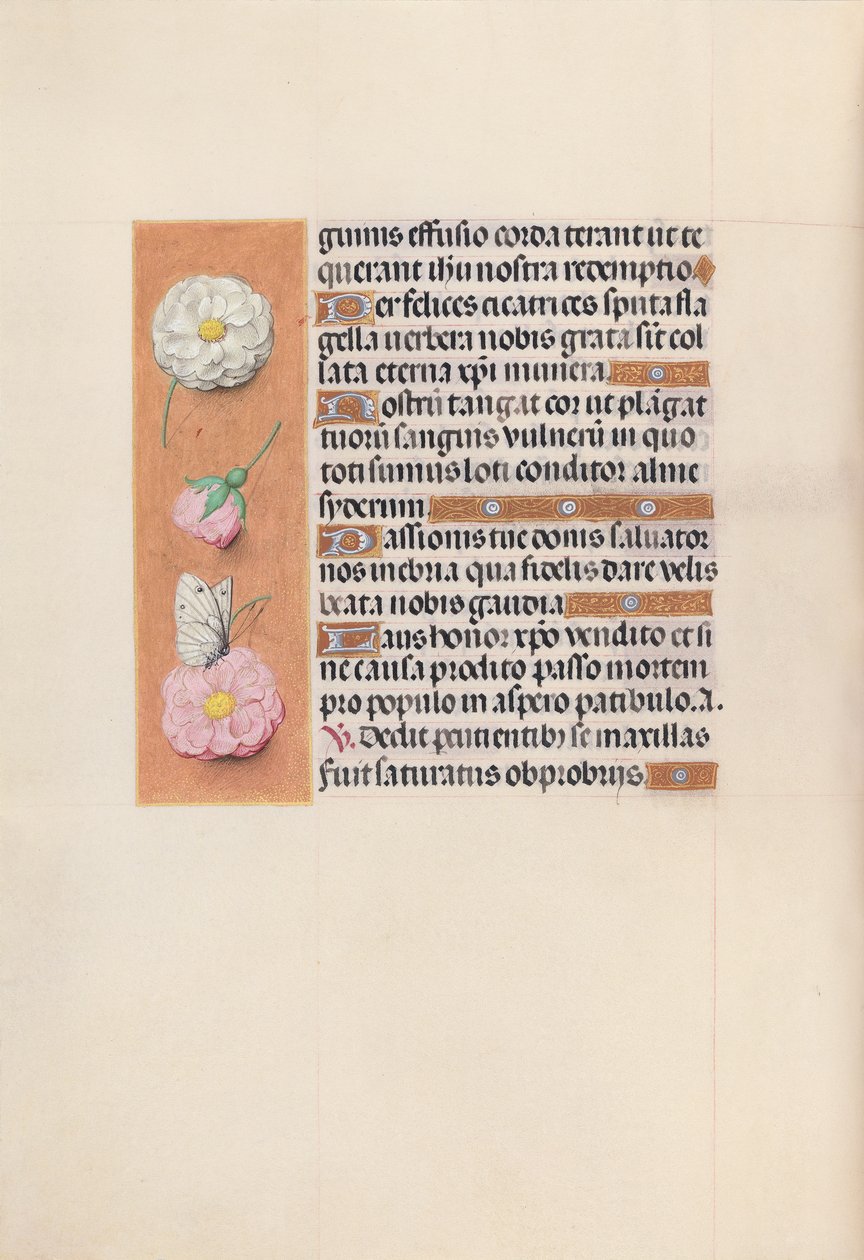 guinis effusio corda terant ut te
querant ihu nostra redemptio.
Per felices cicatrices sputa fla
gella verbera nobis grata sīt col
lata eterna xp̄i munera.
Nostrū tangat cor ut plāgat
tuorū sanguis vulnerū in quo
toti sumus loti conditor alme
syderum.
Passionis tue donis salvator
nos inebria qua fidelis dare velis
beata nobis gaudia
Laus honor xp̄o vendito et si
ne causa prodito passo mortem
pro populo in aspero patibulo. A.
V̄. Dedit percutientibꝫ se maxillas
Fuit saturatus obprobrijs.